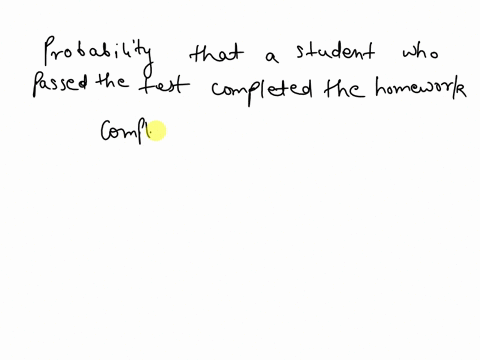 Probability that a student who
passed the test completed the homework
Compl